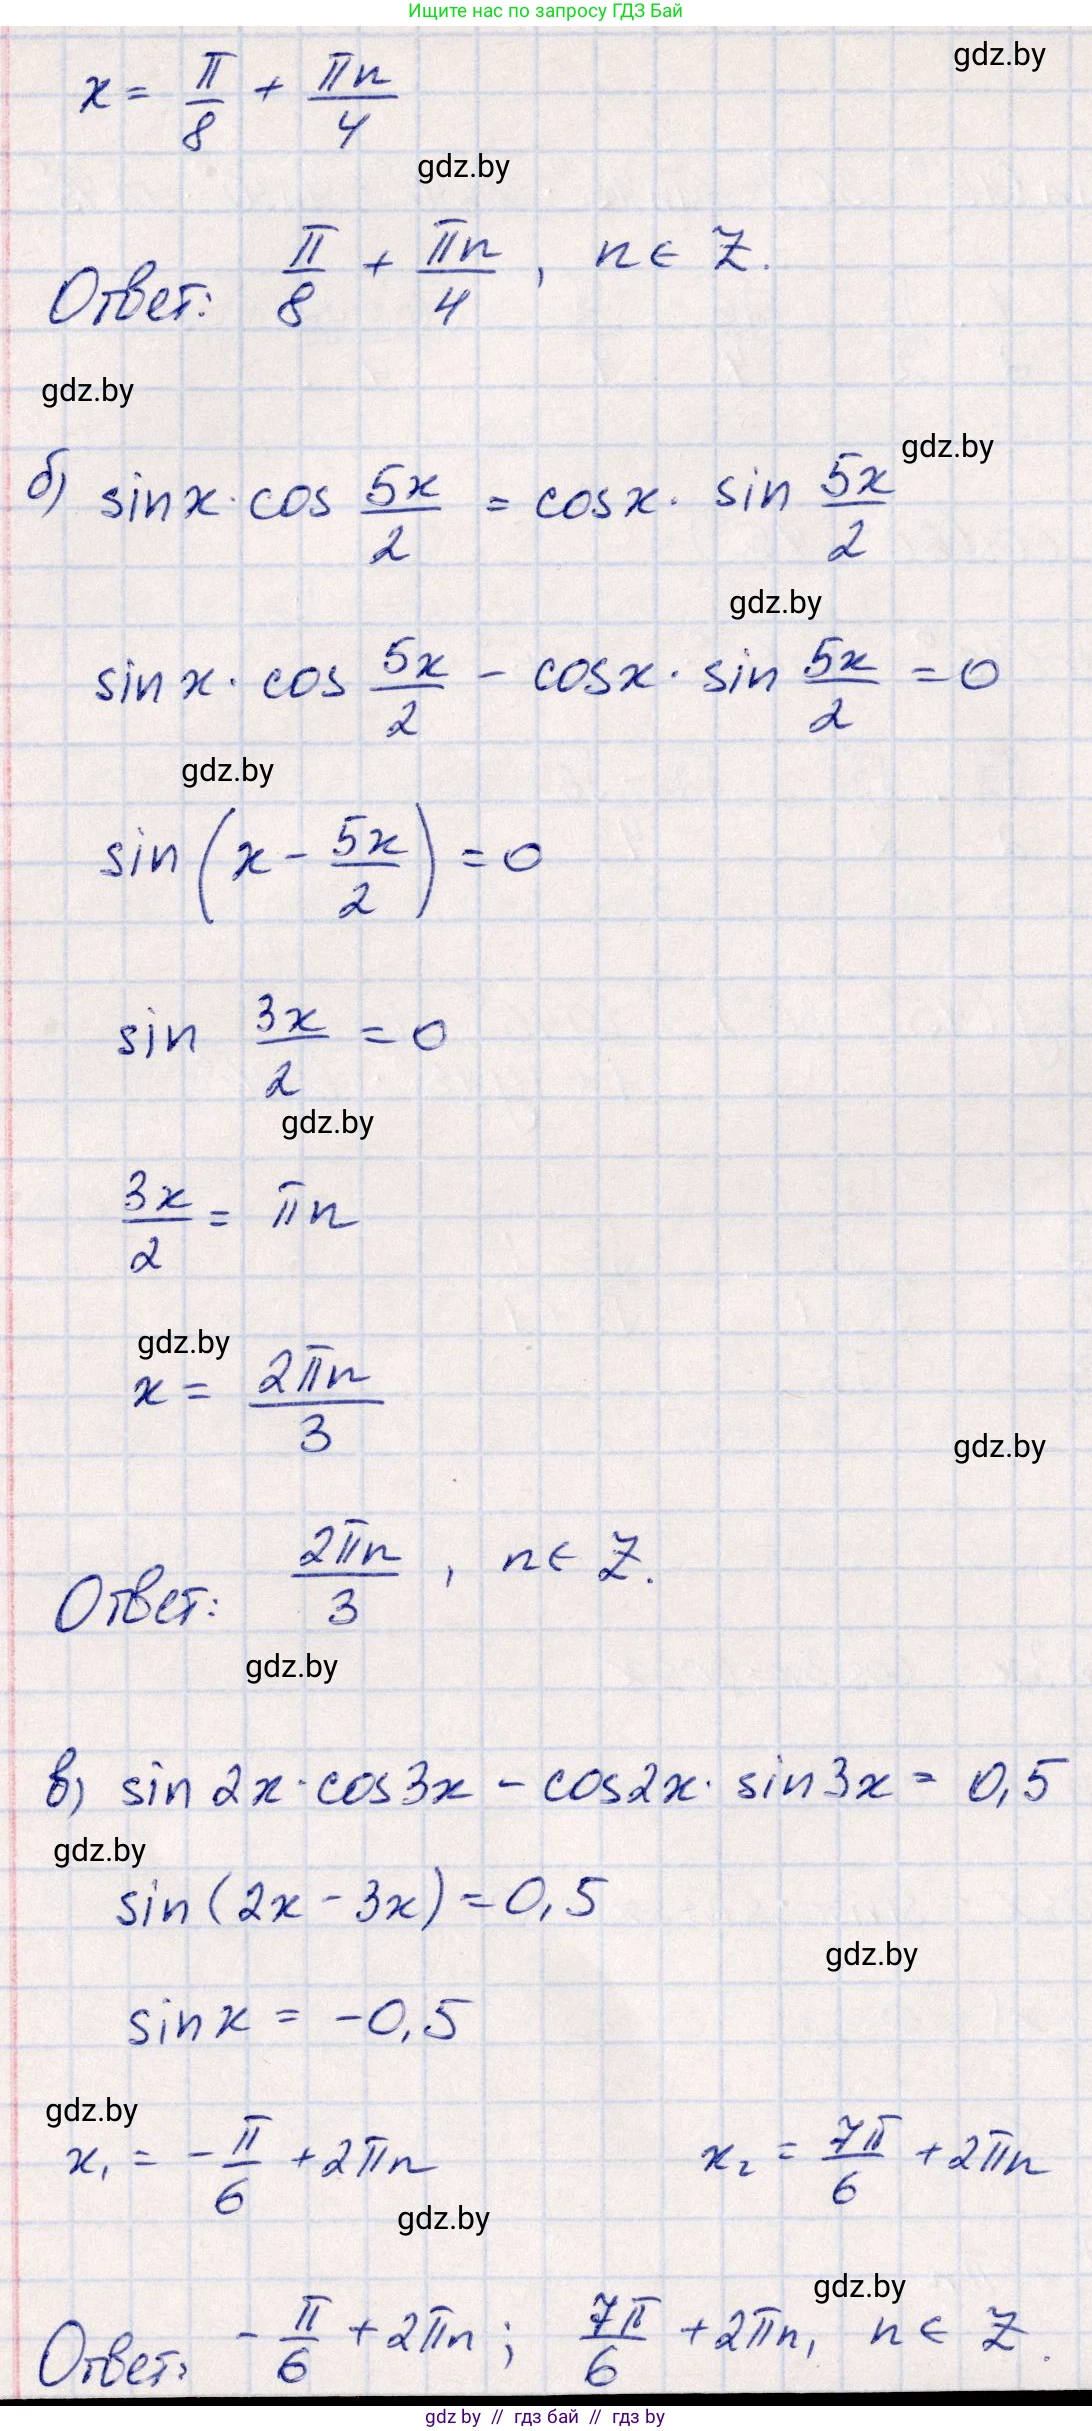 Ищите нас по запросу ГДЗ Бай
gdz.by
x = π/8 + πn/4
gdz.by
Ответ: π/8 + πn/4, n ∈ Z.
gdz.by
gdz.by
б) sin x · cos 5x/2 = cos x · sin 5x/2
gdz.by
sin x · cos 5x/2 - cos x · sin 5x/2 = 0
gdz.by
sin (x - 5x/2) = 0
sin 3x/2 = 0
gdz.by
3x/2 = πn
gdz.by
x = 2πn/3
gdz.by
Ответ: 2πn/3, n ∈ Z.
gdz.by
в) sin 2x · cos 3x - cos 2x · sin 3x = 0,5
gdz.by
sin (2x - 3x) = 0,5
gdz.by
sin x = -0,5
gdz.by
x₁ = -π/6 + 2πn x₂ = 7π/6 + 2πn
gdz.by
gdz.by
Ответ: -π/6 + 2πn; 7π/6 + 2πn, n ∈ Z.
gdz.by // гдз бай // гдз by